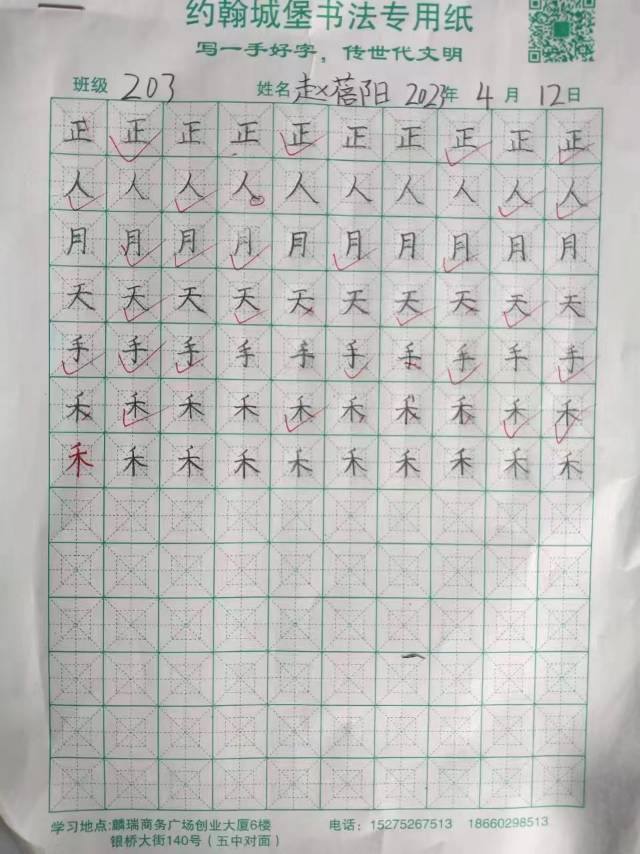 约翰城堡书法专用纸
写一手好字，传世代文明
班级 203 姓名 赵蓓阳 2023年 4 月 12日
正 正 正 正 正 正 正 正 正 正
人 人 人 人 人 人 人 人 人 人
月 月 月 月 月 月 月 月 月 月
天 天 天 天 天 天 天 天 天 天
手 手 手 手 手 手 手 手 手 手
禾 禾 禾 禾 禾 禾 禾 禾 禾 禾
禾 禾 禾 禾 禾 禾 禾 禾 禾 禾
学习地点:麟瑞商务广场创业大厦6楼 电话：15275267513 18660298513
银桥大街140号（五中对面）